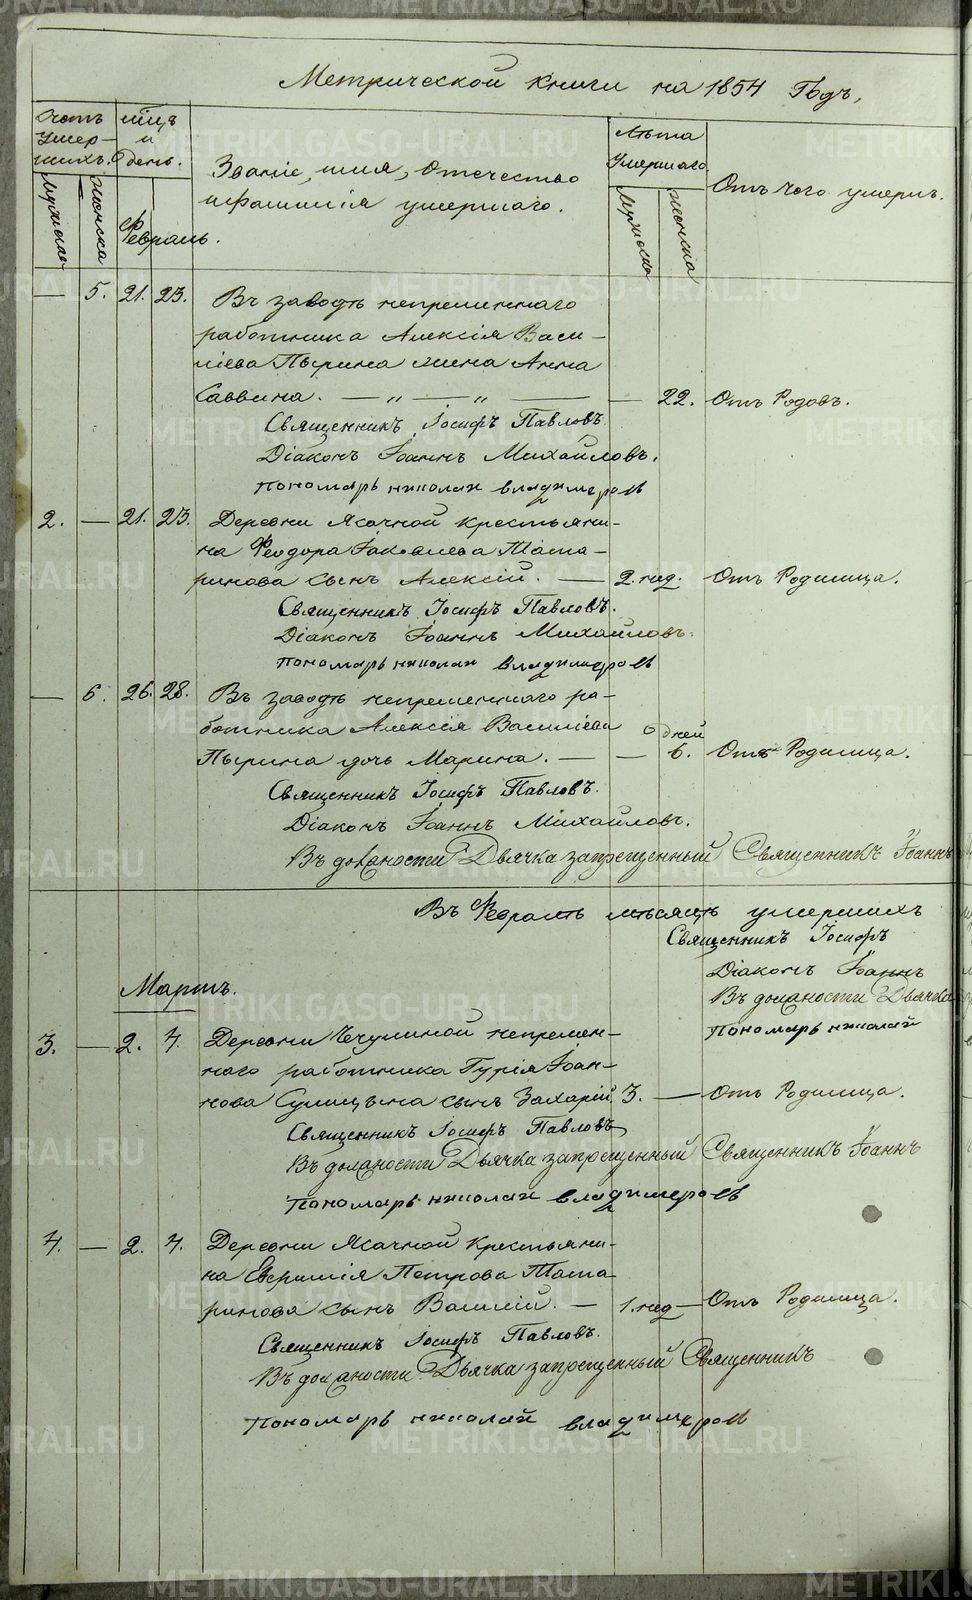 Метрической книги на 1854 Годъ,
Счетъ умершихъ.
мѣсяцъ и день.
Званіе, имя, отечество и фамилія умершаго.
Лѣта умершаго.
Отъ чего умеръ.
Мужеска
Женска
Февраль.
Мужеска
Женска
— 5. 21. 23. Въ заводѣ непременнаго
работника Алексія Васи–
ліева Пырина жена Анна
Саввина. — „ — „ — — 22. Отъ Родовъ.
Священникъ Іосифъ Павловъ.
Діаконъ Іоаннъ Михайловъ.
пономарь николай владимеровъ
2. — 21. 23. Деревни Ясачной крестьяни–
на Феодора Іаковлева Тата–
ринова сынъ Алексій. — 2. нед. Отъ Родимца.
Священникъ Іосифъ Павловъ.
Діаконъ Іоаннъ Михайловъ.
пономарь николай владимеровъ
— 6. 26. 28. Въ заводѣ непременнаго ра–
ботника Алексія Василіева
Пырина дочь Марина. — — 6. дней Отъ Родимца.
Священникъ Іосифъ Павловъ.
Діаконъ Іоаннъ Михайловъ.
Въ должности Дьячка запрещенный Священникъ Іоаннъ
Въ Февралѣ мѣсяцѣ умершихъ
Священникъ Іосифъ
Діаконъ Іоаннъ
Въ должности Дьячка
пономарь николай
Мартъ.
3. — 2. 4. Деревни Чечулиной непремен–
наго работника Гурія Іоан–
нова Сулицына сынъ Захарій. 3. — Отъ Родимца.
Священникъ Іосифъ Павловъ
Въ должности Дьячка запрещенный Священникъ Іоаннъ
пономарь николай владимеровъ
4. — 2. 4. Деревни Ясачной крестьяни–
на Евфимія Петрова Тата–
ринова сынъ Василій. — 1. нед — Отъ Родимца.
Священникъ Іосифъ Павловъ.
Въ должности Дьячка запрещенный Священникъ
пономарь николай владимеровъ
METRIKI.GASO-URAL.RU